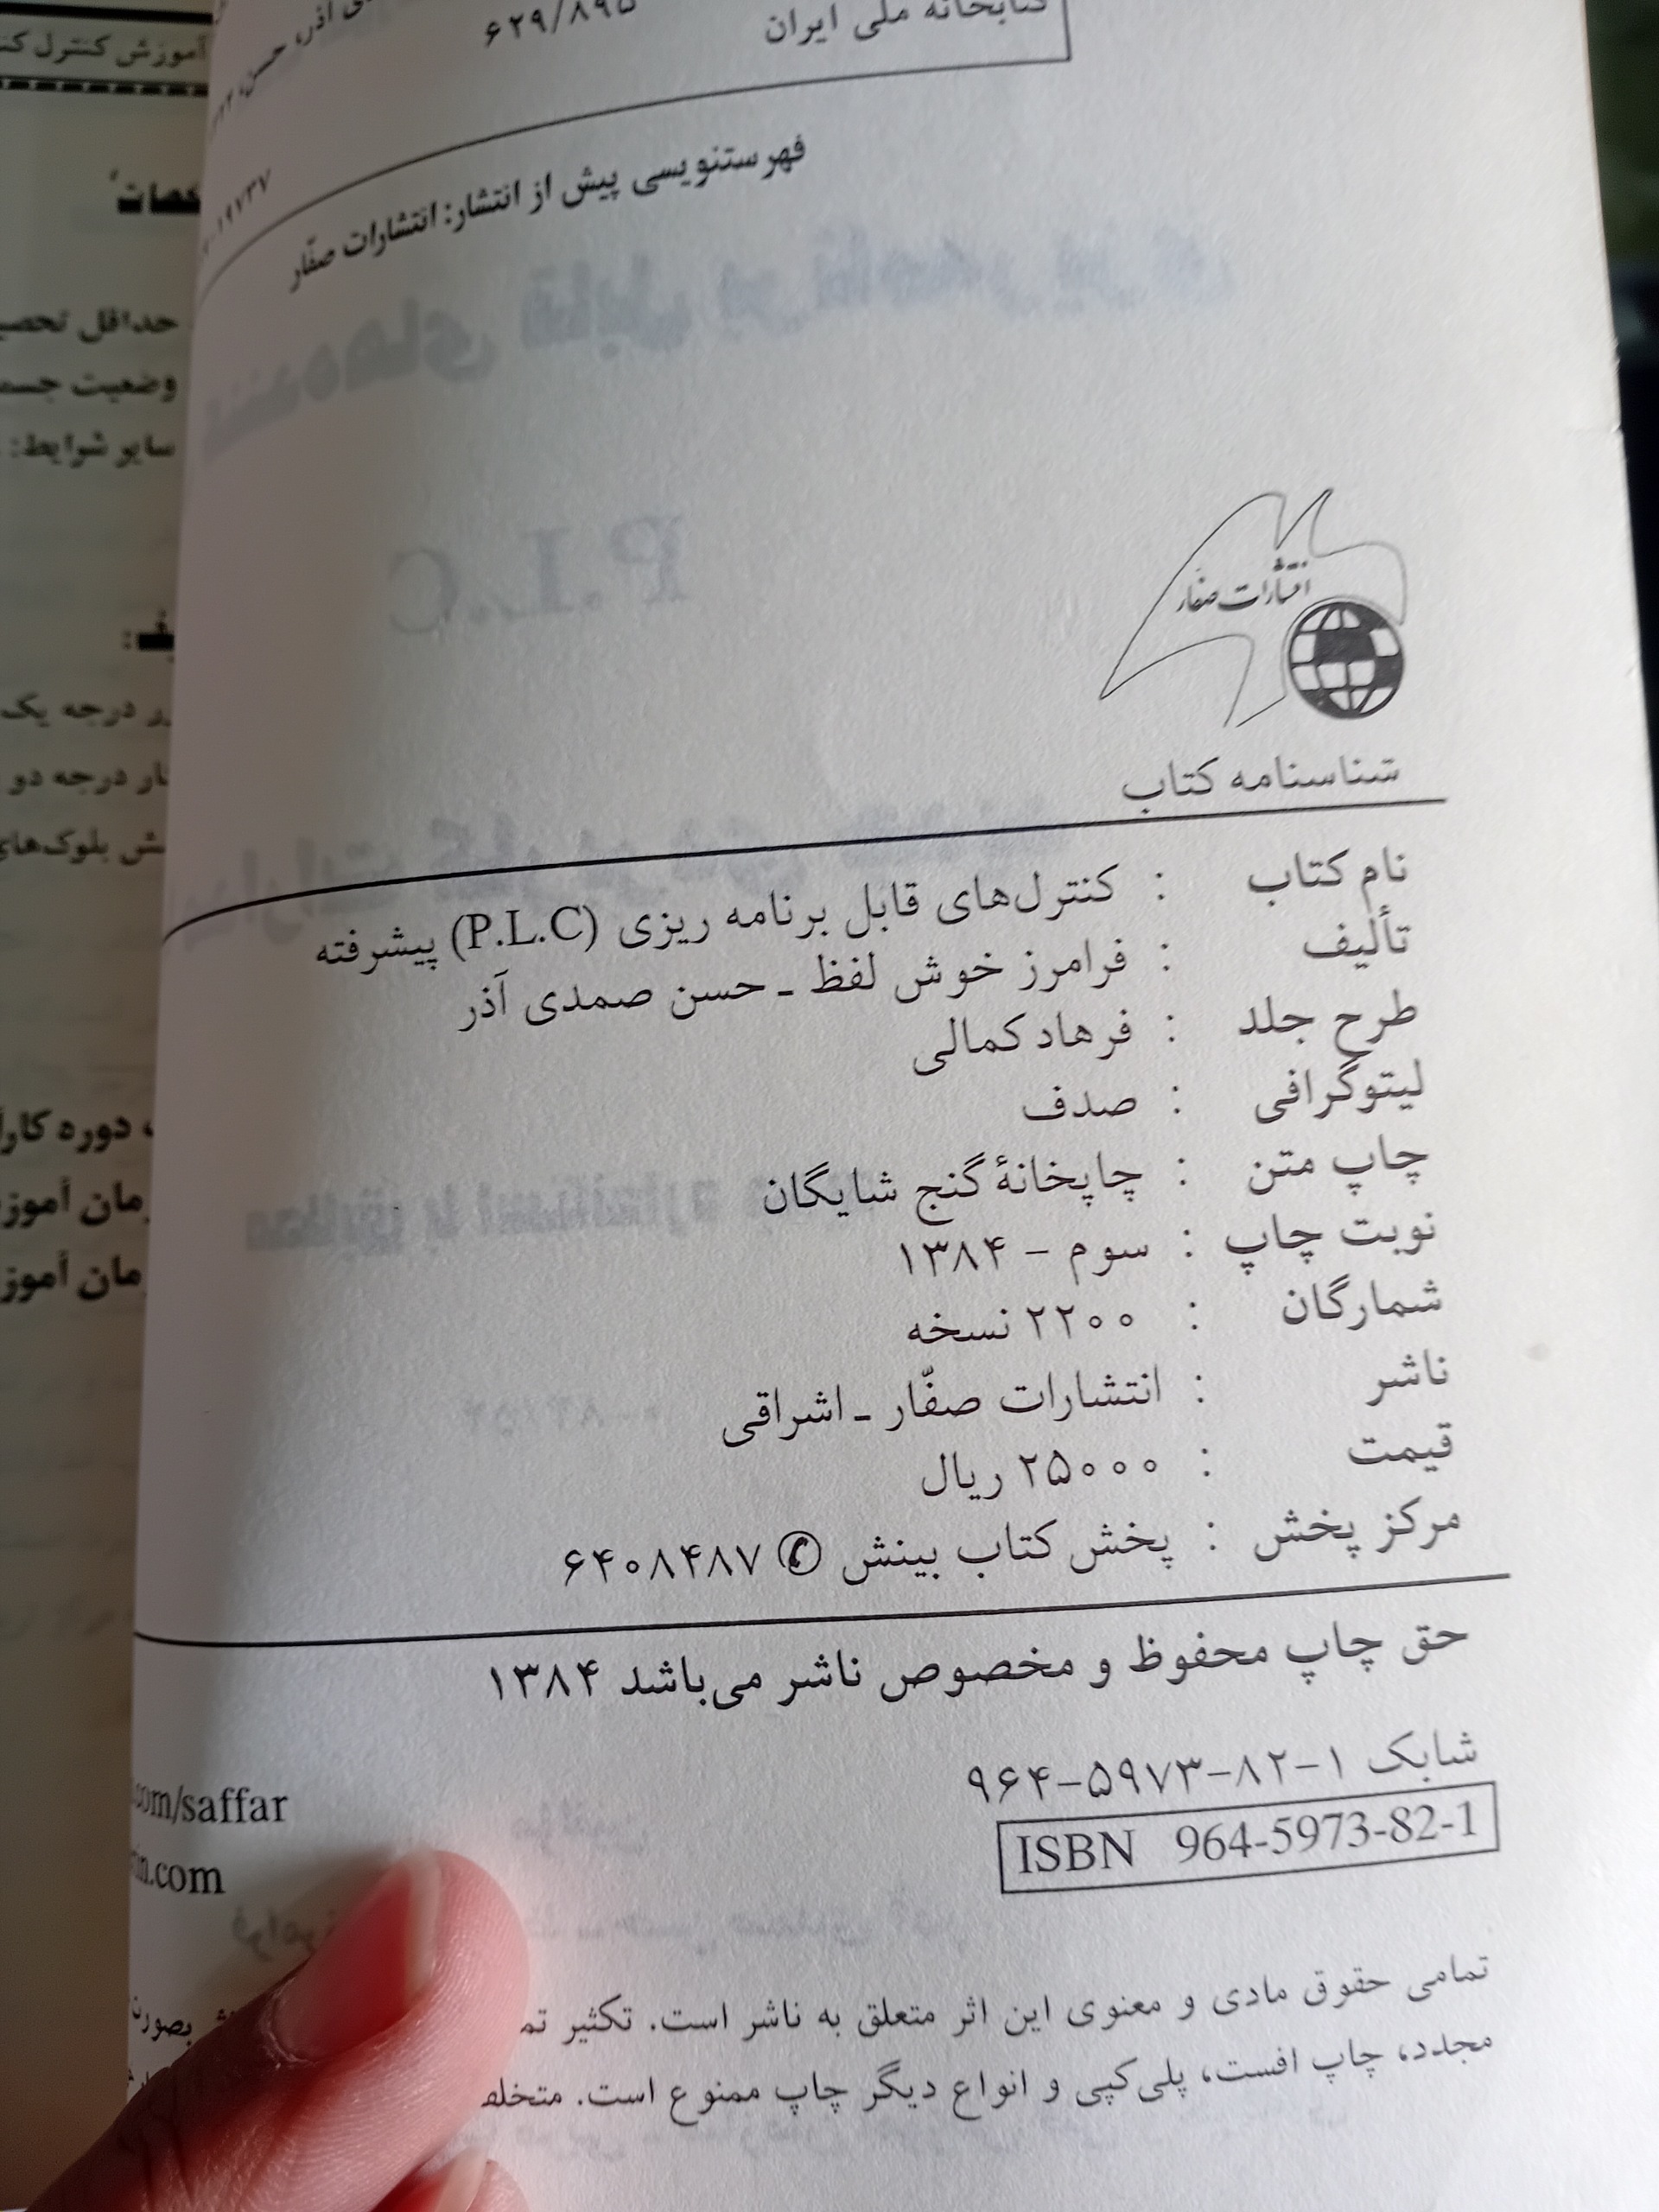 کتابخانه ملی ایران
۶۲۹/۸۹۵
آذر، حسن،
فهرستنویسی پیش از انتشار: انتشارات صفّار
انتشارات صفار
شناسنامه کتاب
نام کتاب : کنترل‌های قابل برنامه ریزی (P.L.C) پیشرفته
تألیف : فرامرز خوش لفظ ـ حسن صمدی آذر
طرح جلد : فرهاد کمالی
لیتوگرافی : صدف
چاپ متن : چاپخانهٔ گنج شایگان
نوبت چاپ : سوم - ۱۳۸۴
شمارگان : ۲۲۰۰ نسخه
ناشر : انتشارات صفّار ـ اشراقی
قیمت : ۲۵۰۰۰ ریال
مرکز پخش : پخش کتاب بینش ✆ ۶۴۰۸۴۸۷
حق چاپ محفوظ و مخصوص ناشر می‌باشد ۱۳۸۴
شابک ۱-۸۲-۵۹۷۳-۹۶۴
ISBN 964-5973-82-1
com/saffar
.com
تمامی حقوق مادی و معنوی این اثر متعلق به ناشر است. تکثیر بصورت
مجدد، چاپ افست، پلی‌کپی و انواع دیگر چاپ ممنوع است.
آموزش کنترل
حداقل
وضعیت
سایر شرایط:
درجه یک
درجه دو
بلوک‌های
دوره